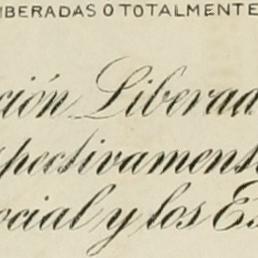 IBERADAS O TOTALMENTE
ción Liberad
spectivament
ocial y los Es